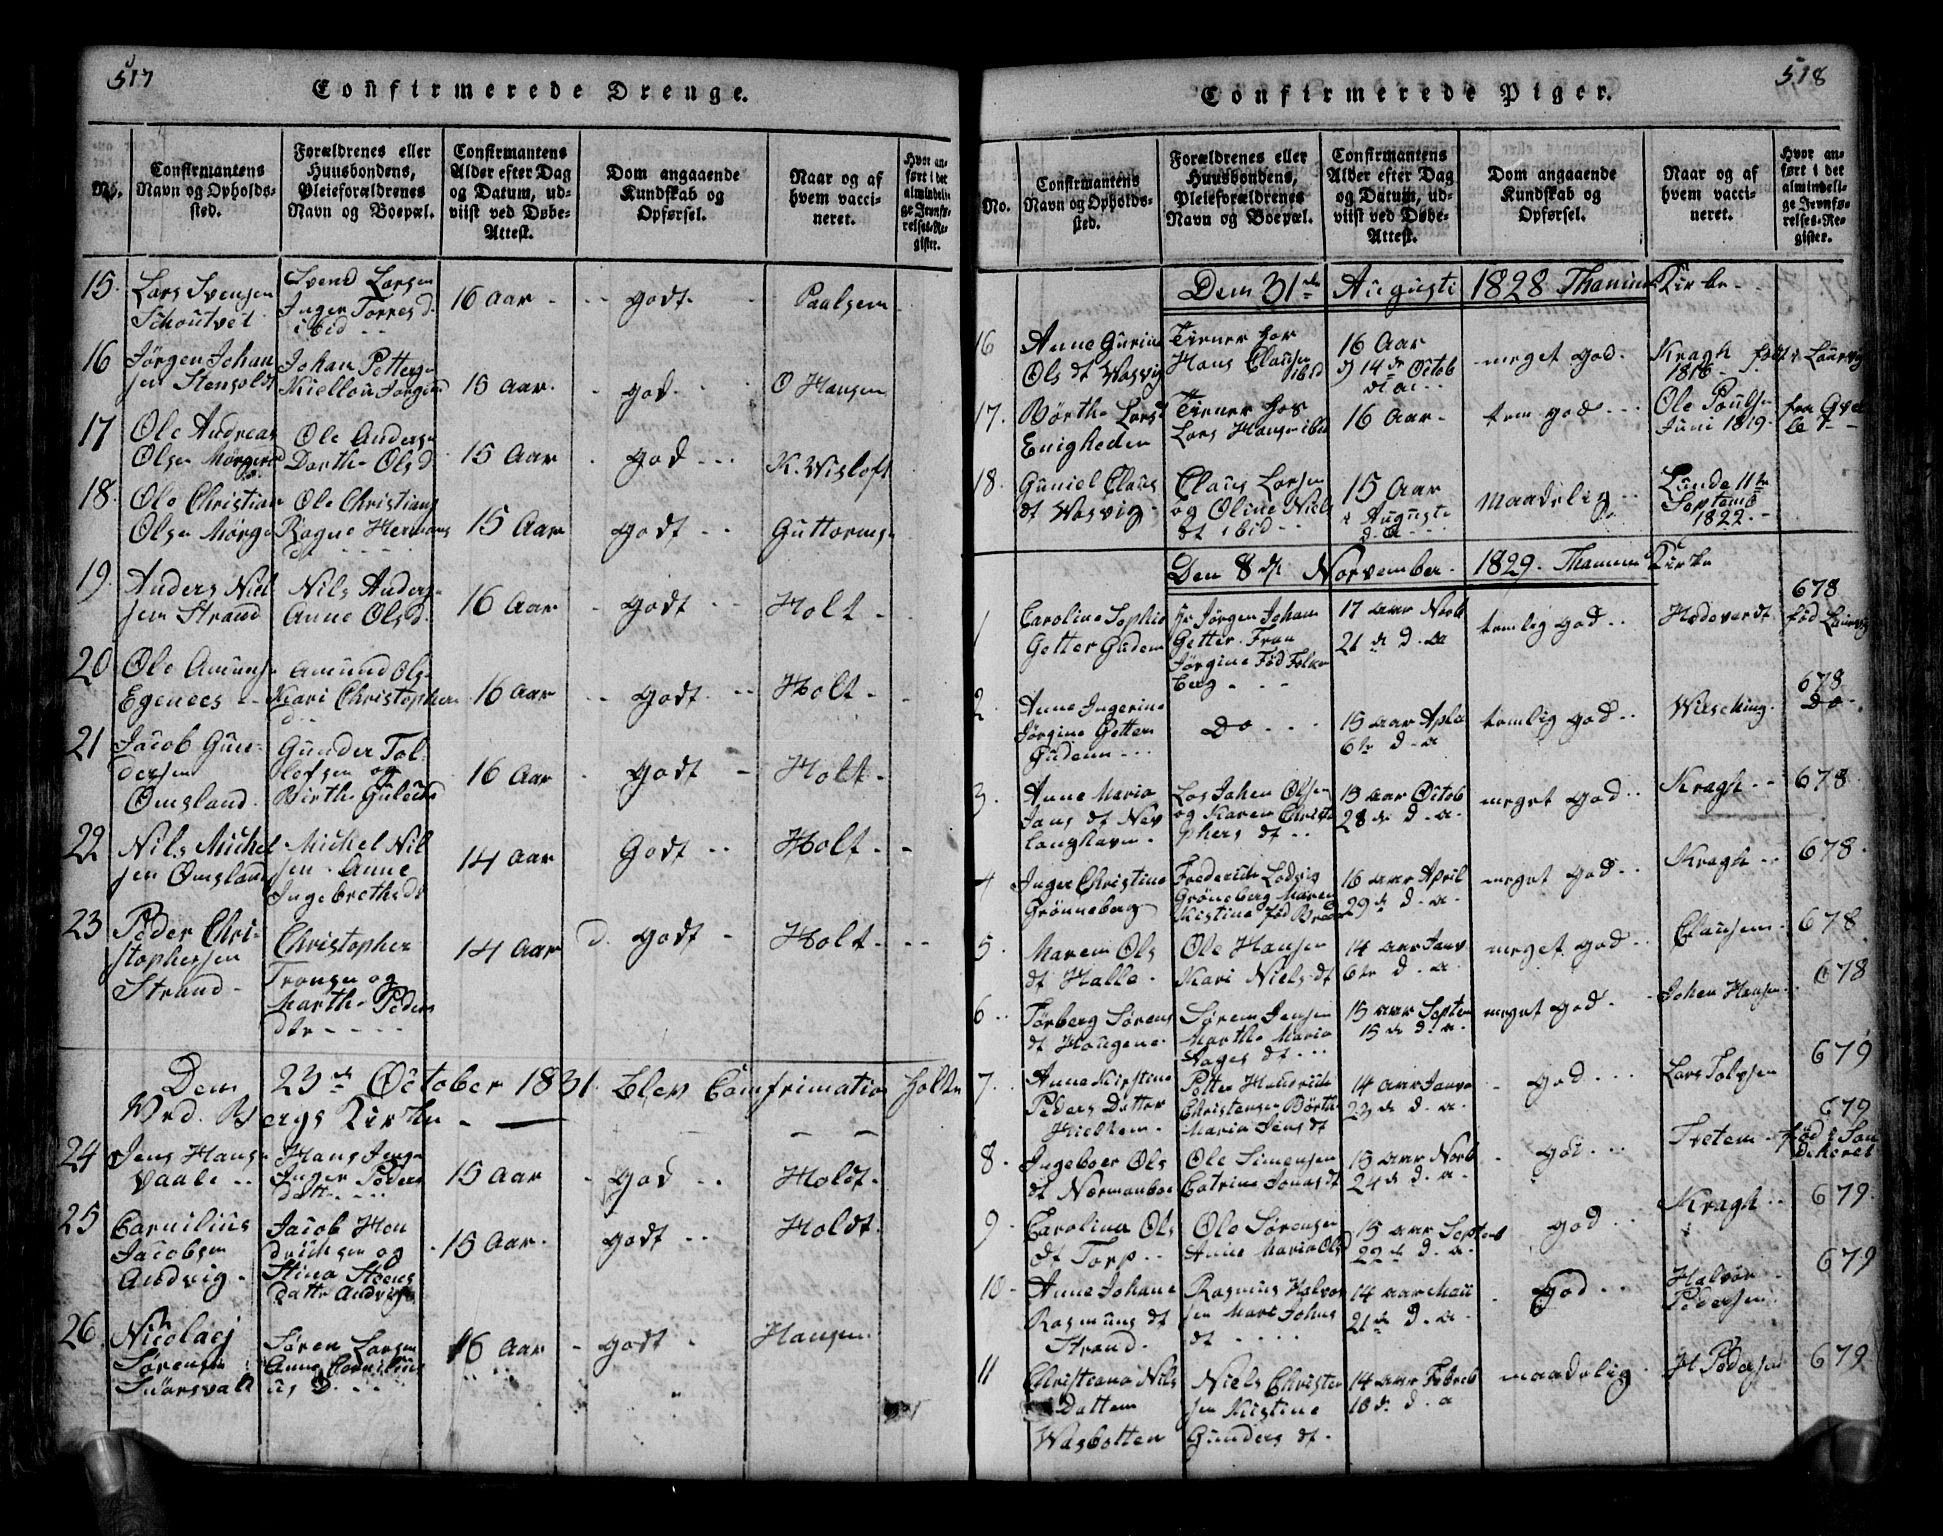 517
Confirmerede Drenge.
No.
Confirmantens
Navn og Opholds-
sted.
Forældrenes eller
Huusbondens,
Pleieforældrenes
Navn og Boepæl.
Confirmantens
Alder efter Dag
og Datum, ud-
viist ved Døbe-
Attest.
Dom angaaende
Kundskab og
Opførsel.
Naar og af
hvem vacci-
neret.
Hvor an-
ført i det
almindeli-
ge Jevnfø-
relses-Re-
gister.
15. Lars Svensen
Svend Larsen
Inger Torresd
ibid
16 Aar
godt
Paalsen
16 Jørgen Johan
sen
Johan Petters
15 Aar.
god
O Hansen
17 Ole Andreas
Olsen
Ole Anders
Dorthe Olsd
15 Aar
god
K. Wisloft
18. Ole Christian
Olsen
Ole Christians
Ragne Hermans
dt
15 Aar
godt
Guttorms
19. Anders Niel
sen Strand
Nils Anders
Anne Olsd.
16 Aar
godt
Holt
20 Ole Amuns
Egenees
Amund Ols
Kari Christopher
d
16 Aar
godt
Holt
21 Jacob Gun
dersen
Omsland.
Gunder Tol
lofsen og
Birthe
16 Aar
godt
Holt
22 Nils Michel
sen Omsland
Michel Nil
sen Anne
Ingebrethsdt
14 Aar
Godt
Holt
23 Peder Chri-
stophersen
Strand
Christopher
Tronsen og
Marthe Peders
dtr
14 Aar
godt
Holt
Dem 23de October 1831. Blev Comfrimation holte
Wed. Bergs Kirke
24 Jens Hans
Vaale
Hans Jens
Inger Peders
datt
15 Aar
god
Holdt
25 Carnilius
Jacobsen
Andvig
Jacob Hen
drichsen og
Stina Steens
datt Andvig
15 Aar.
godt
Holdt
26. Nicolaej
Sørensen
Søren Larsen
Anne Cornilius
16 Aar
godt
Hansen
518
Confirmerede Piger.
No.
Confirmantens
Navn og Opholds-
sted.
Forældrenes eller
Huusbondens,
Pleieforældrenes
Navn og Boepæl.
Confirmantens
Alder efter Dag
og Datum, ud-
viist ved Døbe-
Attest.
Dom angaaende
Kundskab og
Opførsel.
Naar og af
hvem vacci-
neret.
Hvor an-
ført i det
almindeli-
ge Jevnfø-
relses-Re-
gister.
Dem 31de Augusti 1828 Thanum Kirke
16 Anne Gurine
Ols dt Wasvig
Tiener hos
Hans Clausen
ibid
16 Aar
14de Octob
meget god.
Kragh
1816
født i Laurvig
17. Børthe Lars
Enigheden
Tiener hos
Lars Hansen ibid
16 Aar
tem god
Ole Poulsen
Juni 1819
18. Guniel Claus
dt Wasvig
Claus Larsen
og Oline Niels
dt ibid
15 Aar
Augusti
d. a
Maadelig
Lunde 11te
Septemb
1822.
Den 8de November 1829. Thanum Kirke
1 Caroline Sophie
Getter Gudem
Hr Jørgen Johan
Getter Fru
Jørgine Fød Falken
berg
17 aar Novb
21 de d. a
temlig god
Hødeverdt
678
fød Laurvig
2 Anne Ingerine
Jørgine Getter
Gudem
Do
15 aar Aple
6te d. a
temlig god
Wisching
678
Do
3. Anne Maria
Jans dt Nev
langhavn
Los Johan Olsen
og Karen Christo
phers dt
15 aar Octob
28 de d. a.
meget god
Kragh
678
4 Inger Christine
Grønneberg
Frederich Lodvig
Grøneberg Maren
Kistine fød
16 aar April
29 de d. a.
meget god
Kragh
678.
5. Maren Ols
dt Halle
Ole Hansen
Kari Niels dt
14 aar Janv
6te d. a.
meget god
Clausen
678
6 Torberg Sørens
dt Haugene
Søren Jensen
Marthe Maria
dt
15 aar Septem
15 de d. a.
meget god
Johan Hansen
678
7. Anne Kirstine
Peders Datter
Petter Hendrich
Christensen Børthe
Maria Jens dt
14 aar Janva
23 de d. a.
god
Lars Tolvsen
679
8. Ingeboer Ols
dt Normanboe
Ole Simensen
Catrine Jonas dt
15 aar Novb
24 de d. a.
god
679
9 Carolina Ols
dt Torp
Ole Sørensen
Anne Maria Olsd
15 aar Septem
22 de d. a.
god
Kragh
679.
10 Anne Johane
Rasmuns dt
Strand.
Rasmus Halvor
sen Mari Johns
dt
14 aar Maii
21 de d. a
god
Halvor
Pedersen
679
11 Christiana Nils
Datter
Wasbotten
Niels Christen
sen Kistine
Gunders dt
14 aar Febreb
18 de d. a
maadelig
H Pedersen
679